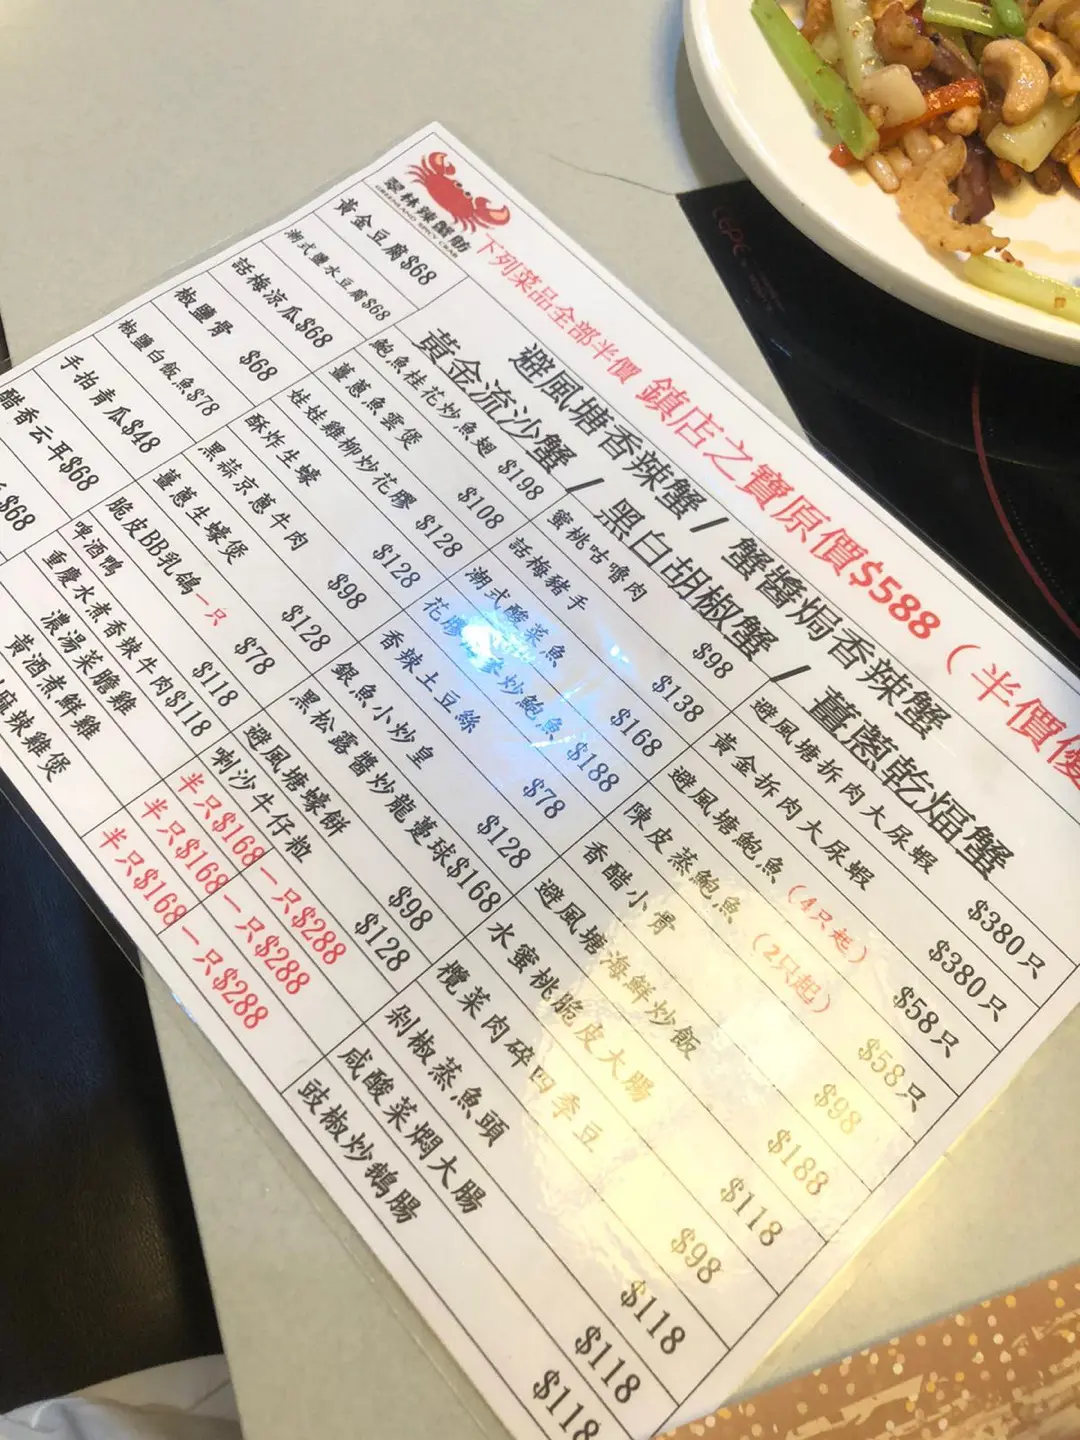 翠林辣蟹舫
GREENLAND SPICY CRAB
下列菜品全部半價 鎮店之寶原價$588 (半價優
避風塘香辣蟹 / 蟹醬焗香辣蟹
黃金流沙蟹 / 黑白胡椒蟹 / 薑蔥乾煏蟹
黃金豆腐$68
潮式鹽水豆腐$68
話梅涼瓜$68
椒鹽骨 $68
椒鹽白飯魚$78
手拍青瓜$48
醋香云耳$68
$68
鮑魚桂花炒魚翅 $198
薑蔥魚雲煲 $108
娃娃雞柳炒花膠 $128
酥炸生蠔 $128
黑蒜京蔥牛肉 $98
薑蔥生蠔煲 $128
脆皮BB乳鴿一只 $78
啤酒鴨 $118
重慶水煮香辣牛肉$118
濃湯菜膽雞 半只$168 一只$288
黃酒煮鮮雞 半只$168 一只$288
麻辣雞煲 半只$168 一只$288
蜜桃咕嚕肉 $98
話梅豬手 $138
潮式酸菜魚 $168
花膠海參炒鮑魚 $188
香辣土豆絲 $78
銀魚小炒皇 $128
黑松露醬炒龍躉球$168
避風塘蠔餅 $98
喇沙牛仔粒 $128
避風塘拆肉大尿蝦 $380只
黃金拆肉大尿蝦 $380只
避風塘鮑魚 (4只起) $58只
陳皮蒸鮑魚 (2只起) $58只
香醋小骨 $98
避風塘海鮮炒飯 $188
水蜜桃脆皮大腸 $118
欖菜肉碎四季豆 $98
剁椒蒸魚頭 $118
咸酸菜燜大腸 $118
豉椒炒鵝腸 $118